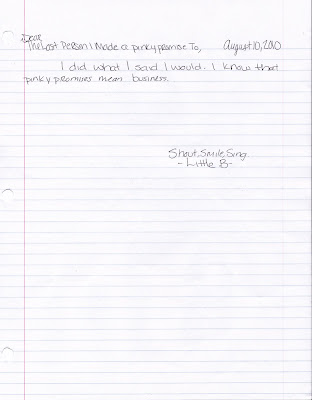 Dear
The Last Person I Made a pinky promise To, August 10, 2010
I did what I said I would. I know that
pinky promises mean business.
Shout, Smile Sing.
- Little B-